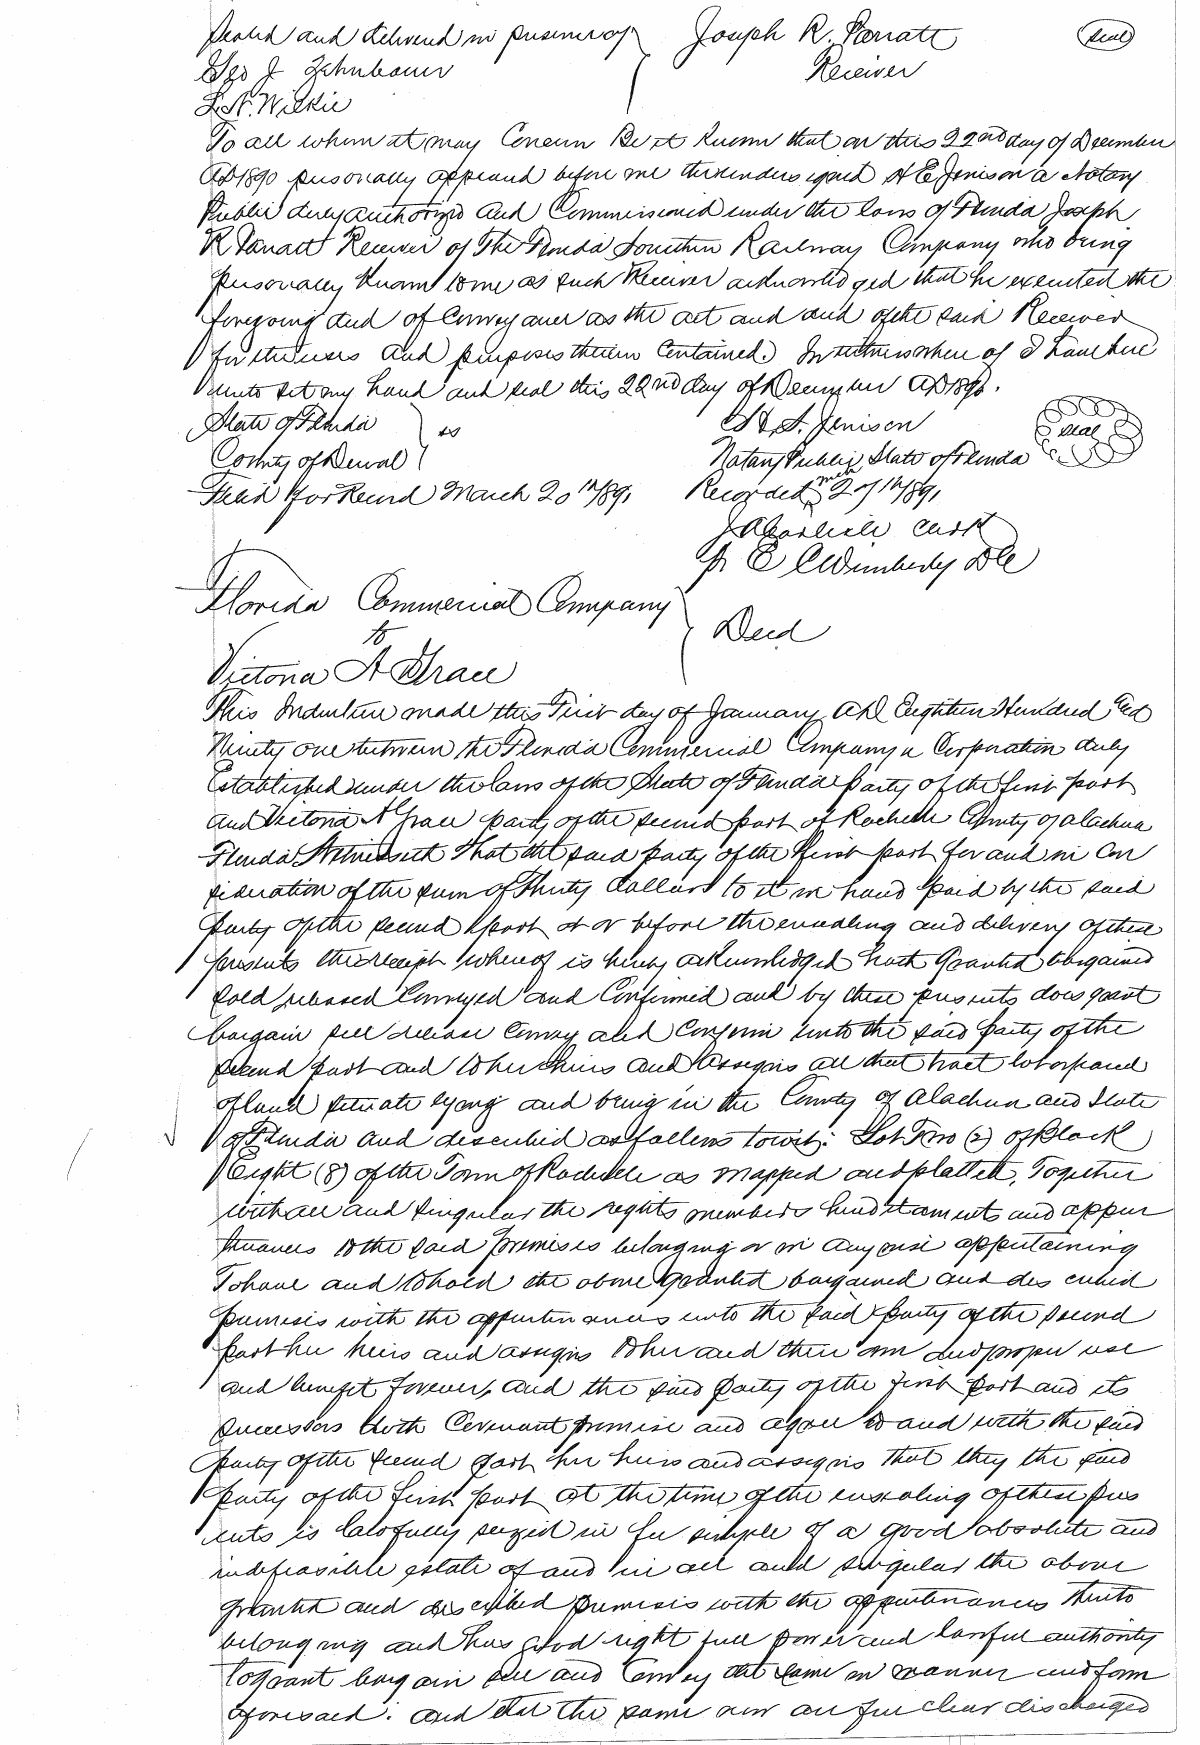 Sealed and delivered in presence of Joseph R. Parrott (Seal)
Geo J Zehnbauer Receiver
L. N. Wilkie
To all whom it may Concern Be it Known that on this 22nd day of December
AD 1890 personally appeared before me the undersigned H E Jenison a Notary
Public duly authorized and Commissioned under the laws of Florida Joseph
R Parrott Receiver of The Florida Southern Railway Company who being
personally Known to me as such Receiver acknowledged that he executed the
foregoing deed of Conveyance as the act and deed of the said Receiver
for the uses and purposes therein Contained. In witness where of I have here
unto set my hand and seal this 22nd day of December AD 1890.
State of Florida } ss H. S. Jenison seal
County of Duval Notary Public State of Florida
Filed for Record March 20th 1891 Recorded Mch 20th 1891
J A Carlisle Clerk
pr E C Wimberly DC
Florida Commercial Company
to Deed
Victoria A Grace
This Indenture made this First day of January AD Eighteen Hundred and
Ninety one between the Florida Commercial Company a Corporation duly
Established under the laws of the State of Florida Party of the first part
and Victoria A Grace party of the second part of Rochelle County of Alachua
Florida Witnesseth That the said party of the first part for and in Con
sideration of the sum of Thirty dollars to it in hand paid by the said
party of the second part at or before the ensealing and delivery of these
presents the receipt whereof is hereby acknowledged hath Granted bargained
sold released Conveyed and Confirmed and by these presents does grant
bargain sell release Convey and Confirm unto the said party of the
second part and to her heirs and assigns all that tract lot or parcel
of land situate lying and being in the County of Alachua and State
of Florida and described as follows towit: Lot Two (2) of Block
Eight (8) of the Town of Rochelle as mapped and platted, Together
with all and singular the rights members hereditaments and appur
tenances to the said premises belonging or in any wise appertaining
To have and to hold the above granted bargained and des cribed
premises with the appurtenances unto the said party of the second
part her heirs and assigns to her and their own and proper use
and benefit forever, and the said party of the first part and its
successors doth Covenant promise and agree to and with the said
party of the second part her heirs and assigns that they the said
party of the first part at the time of the ensealing of these pres
ents is lawfully seized in fee simple of a good absolute and
indefeasible estate of and in all and singular the above
granted and described premises with the appurtenances thereto
belonging and has good right full power and lawful authority
to grant bargain sell and Convey the same in manner and form
aforesaid. and that the same now are free clear discharged